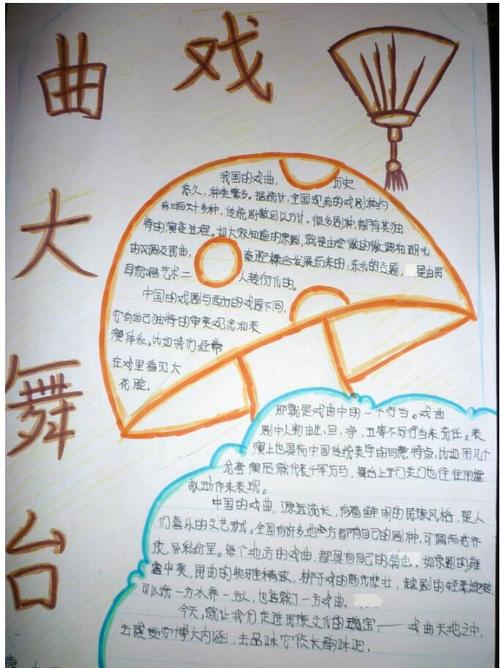 戏
曲
大
舞
台
我国的戏曲, 历史
悠久, 种类繁多。据统计, 全国现有的戏剧种约
有三百六十多种, 传统剧数目以万计。很多剧种, 都有其独
特的演变过程。如大家知道的京剧, 就是由安徽的徽调和湖北
的汉调及昆曲, 秦腔揉合发展而来的; 东北的吉剧, 是由民
间歌唱艺术二 人转衍化的。
中国的戏剧与西方的戏剧不同,
它有自己独特的审美观念和表
演体系。比如我们经常
在戏里看见大
花脸,
那就是戏曲中的一个行当。戏曲
剧中人物由生, 旦, 净, 丑等不同行当来充任。表
演上也具有中国传统美学的写意特点, 比如用几个
龙套演员就代表千军万马, 舞台上开门关门也往往用虚
拟动作来表现。
中国的戏曲, 源远流长, 有着鲜明的民族风格, 是人
们喜乐的文艺形式。全国有许多地方都有自己的剧种, 可谓百花齐
放, 异彩纷呈。每个地方的戏曲, 都具有自己的特色, 如京剧的雍
容华美, 昆曲的典雅精致, 梆子戏的高亢悲壮, 越剧的轻柔婉转
可以说一方水养一方人, 也养就了一方戏曲。
今天, 就让我们走进民族文化的瑰宝——戏曲天地之中,
去感觉它博大内涵, 去品味它悠长韵味吧。